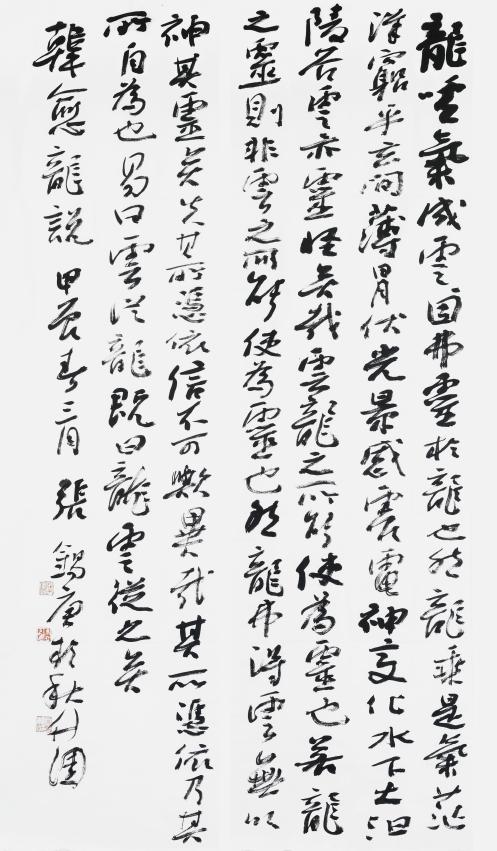 龍嘘氣成雲固弗靈於龍也然龍乘是氣茫
洋窮乎玄間薄日月伏光景感震電神變化水下土汩
陵谷雲亦靈怪矣哉雲龍之所能使為靈也若龍
之靈則非雲之所能使為靈也然龍弗得雲無以
神其靈矣失其所憑依信不可歟異哉其所憑依乃其
所自為也易曰雲從龍既曰龍雲從之矣
韓愈龍説 甲辰春三月 張錫庚於秋